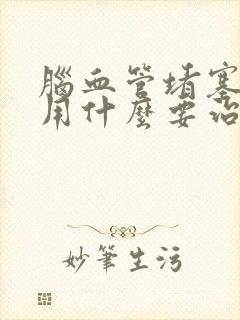 腦血管堵塞
用什麼要治
妙筆生污